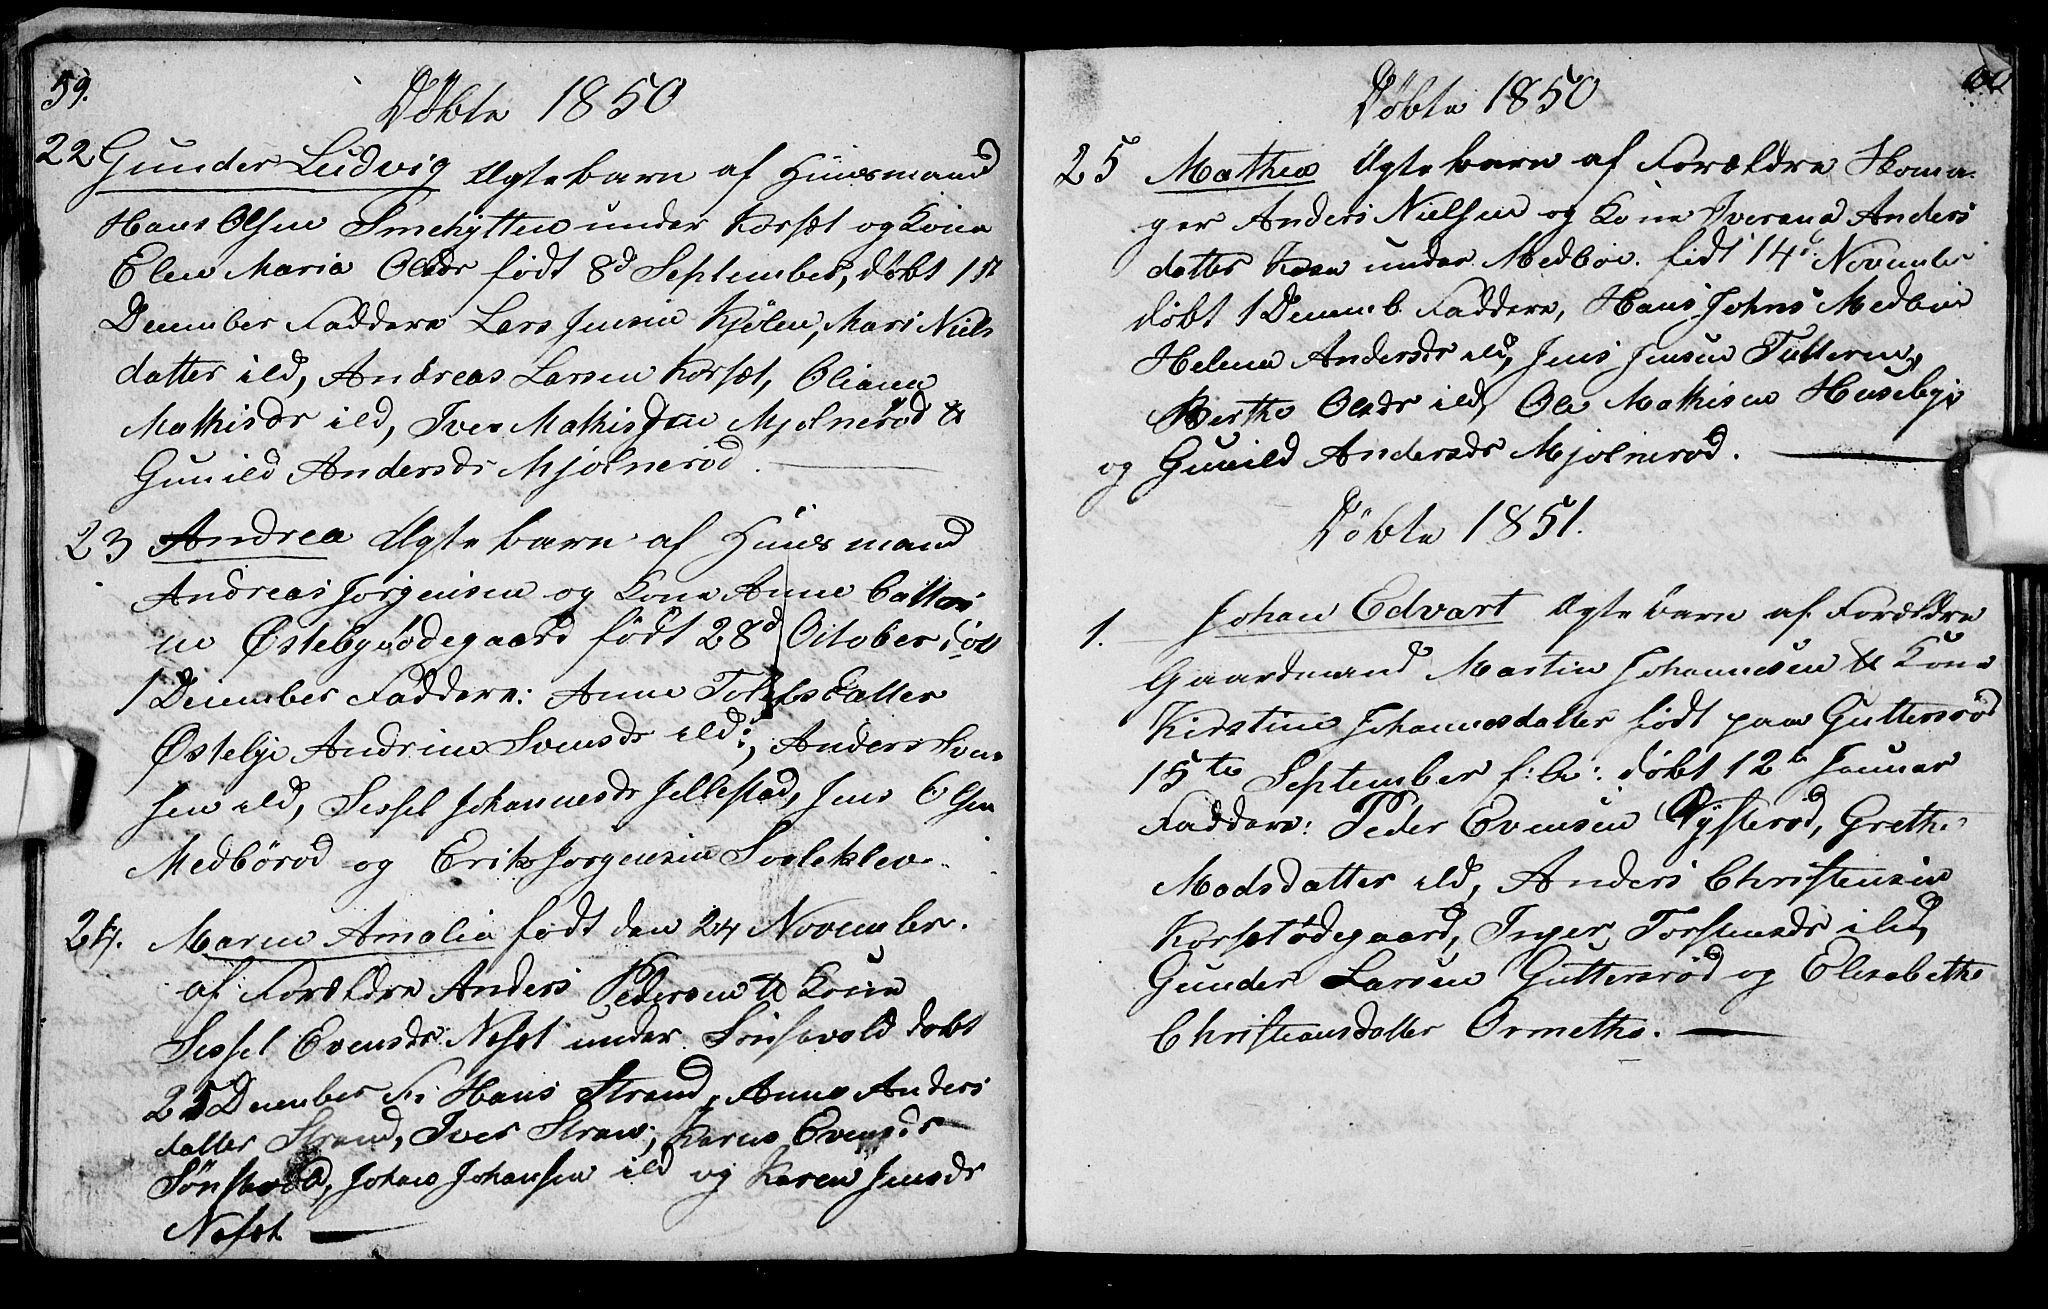 59.
Döbte 1850
22 Gunder Ludvig Ægtebarn af Huusmand
Hans Olsen Smehytten under Korsæt og Kone
Elen Maria Olsdr födt 8d September, döbt 1st
December Faddere Lars Jensen Kjölen, Mari Niels
datter ibd, Andreas Larsen Korsæt, Oliana
Mathisdr ibd, Iver Mathisen Mjölneröd &
Gunild Andersdr Mjölneröd.
23 Andrea Ægtebarn af Huusmand
Andreas Jörgensen og Kone Anne Cathri
ne Östebyeödegaard födt 28d October döbt
1 December Faddere: Anne Tolefsdatter
Östebye Andrine Svensdr ibd:, Anders Sven
sen ibd, Sessel Johannesdr Jellestad, Jens Olsen
Medböröd og Erik Jörgensen Soleklev.
24. Maren Amalia födt den 24 November.
af Forældre Anders Pedersen & Kone
Sessel Evensdr Nesset under Sönstevold döbt
25 December F: Hans Strand, Anne Anders
datter Strand, Iver Strand, Karen Evensdr
Johans Johansen ibd og Karen Jensdr
Neset
60
Döbte 1850
25 Mathea Ægtebarn af Forældre Skoma-
ger Anders Nielsen og Kone Iverana Anders
datter under Medböe. födt 14de November
döbt 1 Decemb. Faddere, Hans Johns Medböe
Helene Andersdr ibd, Jens Jensen
Berthe Olsdr ibd, Ole Mathisen Husebye
og Gunild Andersdr Mjölneröd.
Döbte 1851.
1. Johan Edvart Ægtebarn af Forældre
Gaardmand Martin Johannesen & Kone
Kirstine Johannesdatter födt paa Guttersröd
15te September f: A: döbt 12te Januar
Faddere: Peder Evensen Dysteröd, Grethe
Madsdatter ibd, Anders Christensen
Korsetödegaard, Inger Torstensdr ibd,
Gunder Larsen Guttersröd og Elisabethe
Christiansdatter Ormethe.